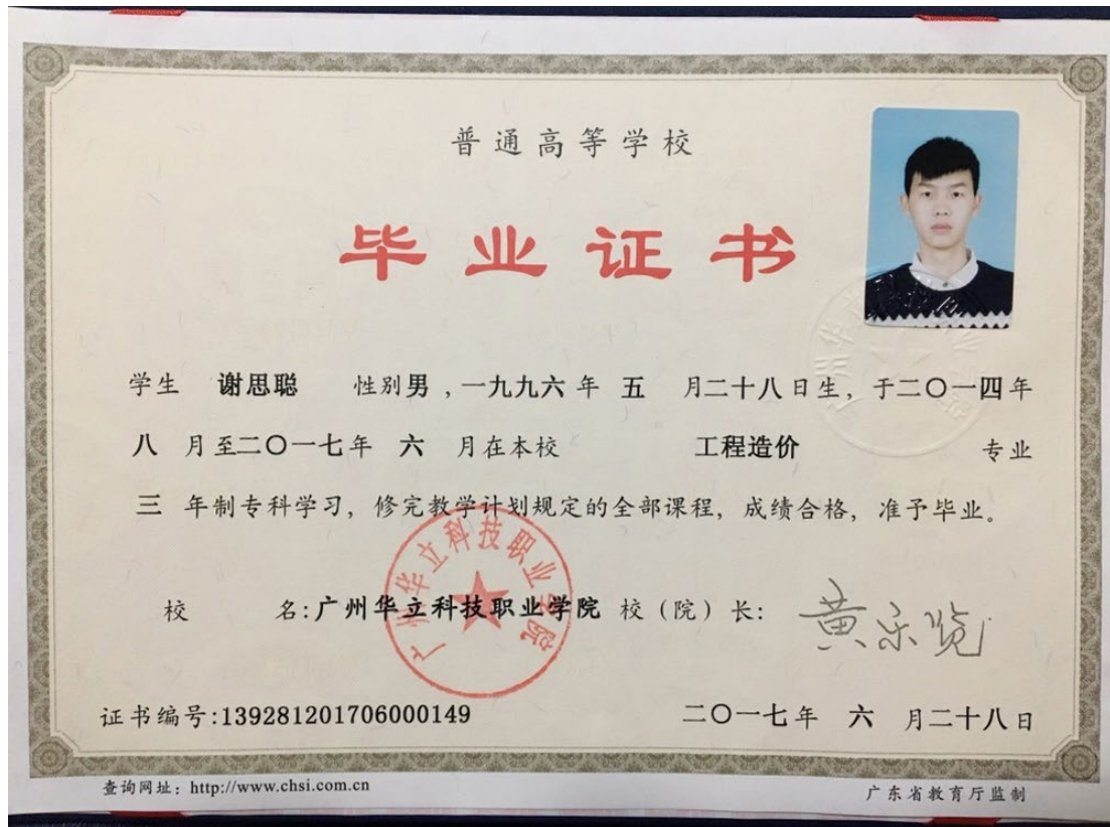 普通高等学校
毕业证书
学生 谢思聪 性别男，一九九六年 五 月二十八日生，于二〇一四年
八 月至二〇一七年 六 月在本校 工程造价 专业
三 年制专科学习，修完教学计划规定的全部课程，成绩合格，准予毕业。
广州华立科技职业学院
校 名:广州华立科技职业学院 校（院）长:
证书编号:139281201706000149 二〇一七年 六 月二十八日
查询网址：http://www.chsi.com.cn 广东省教育厅监制